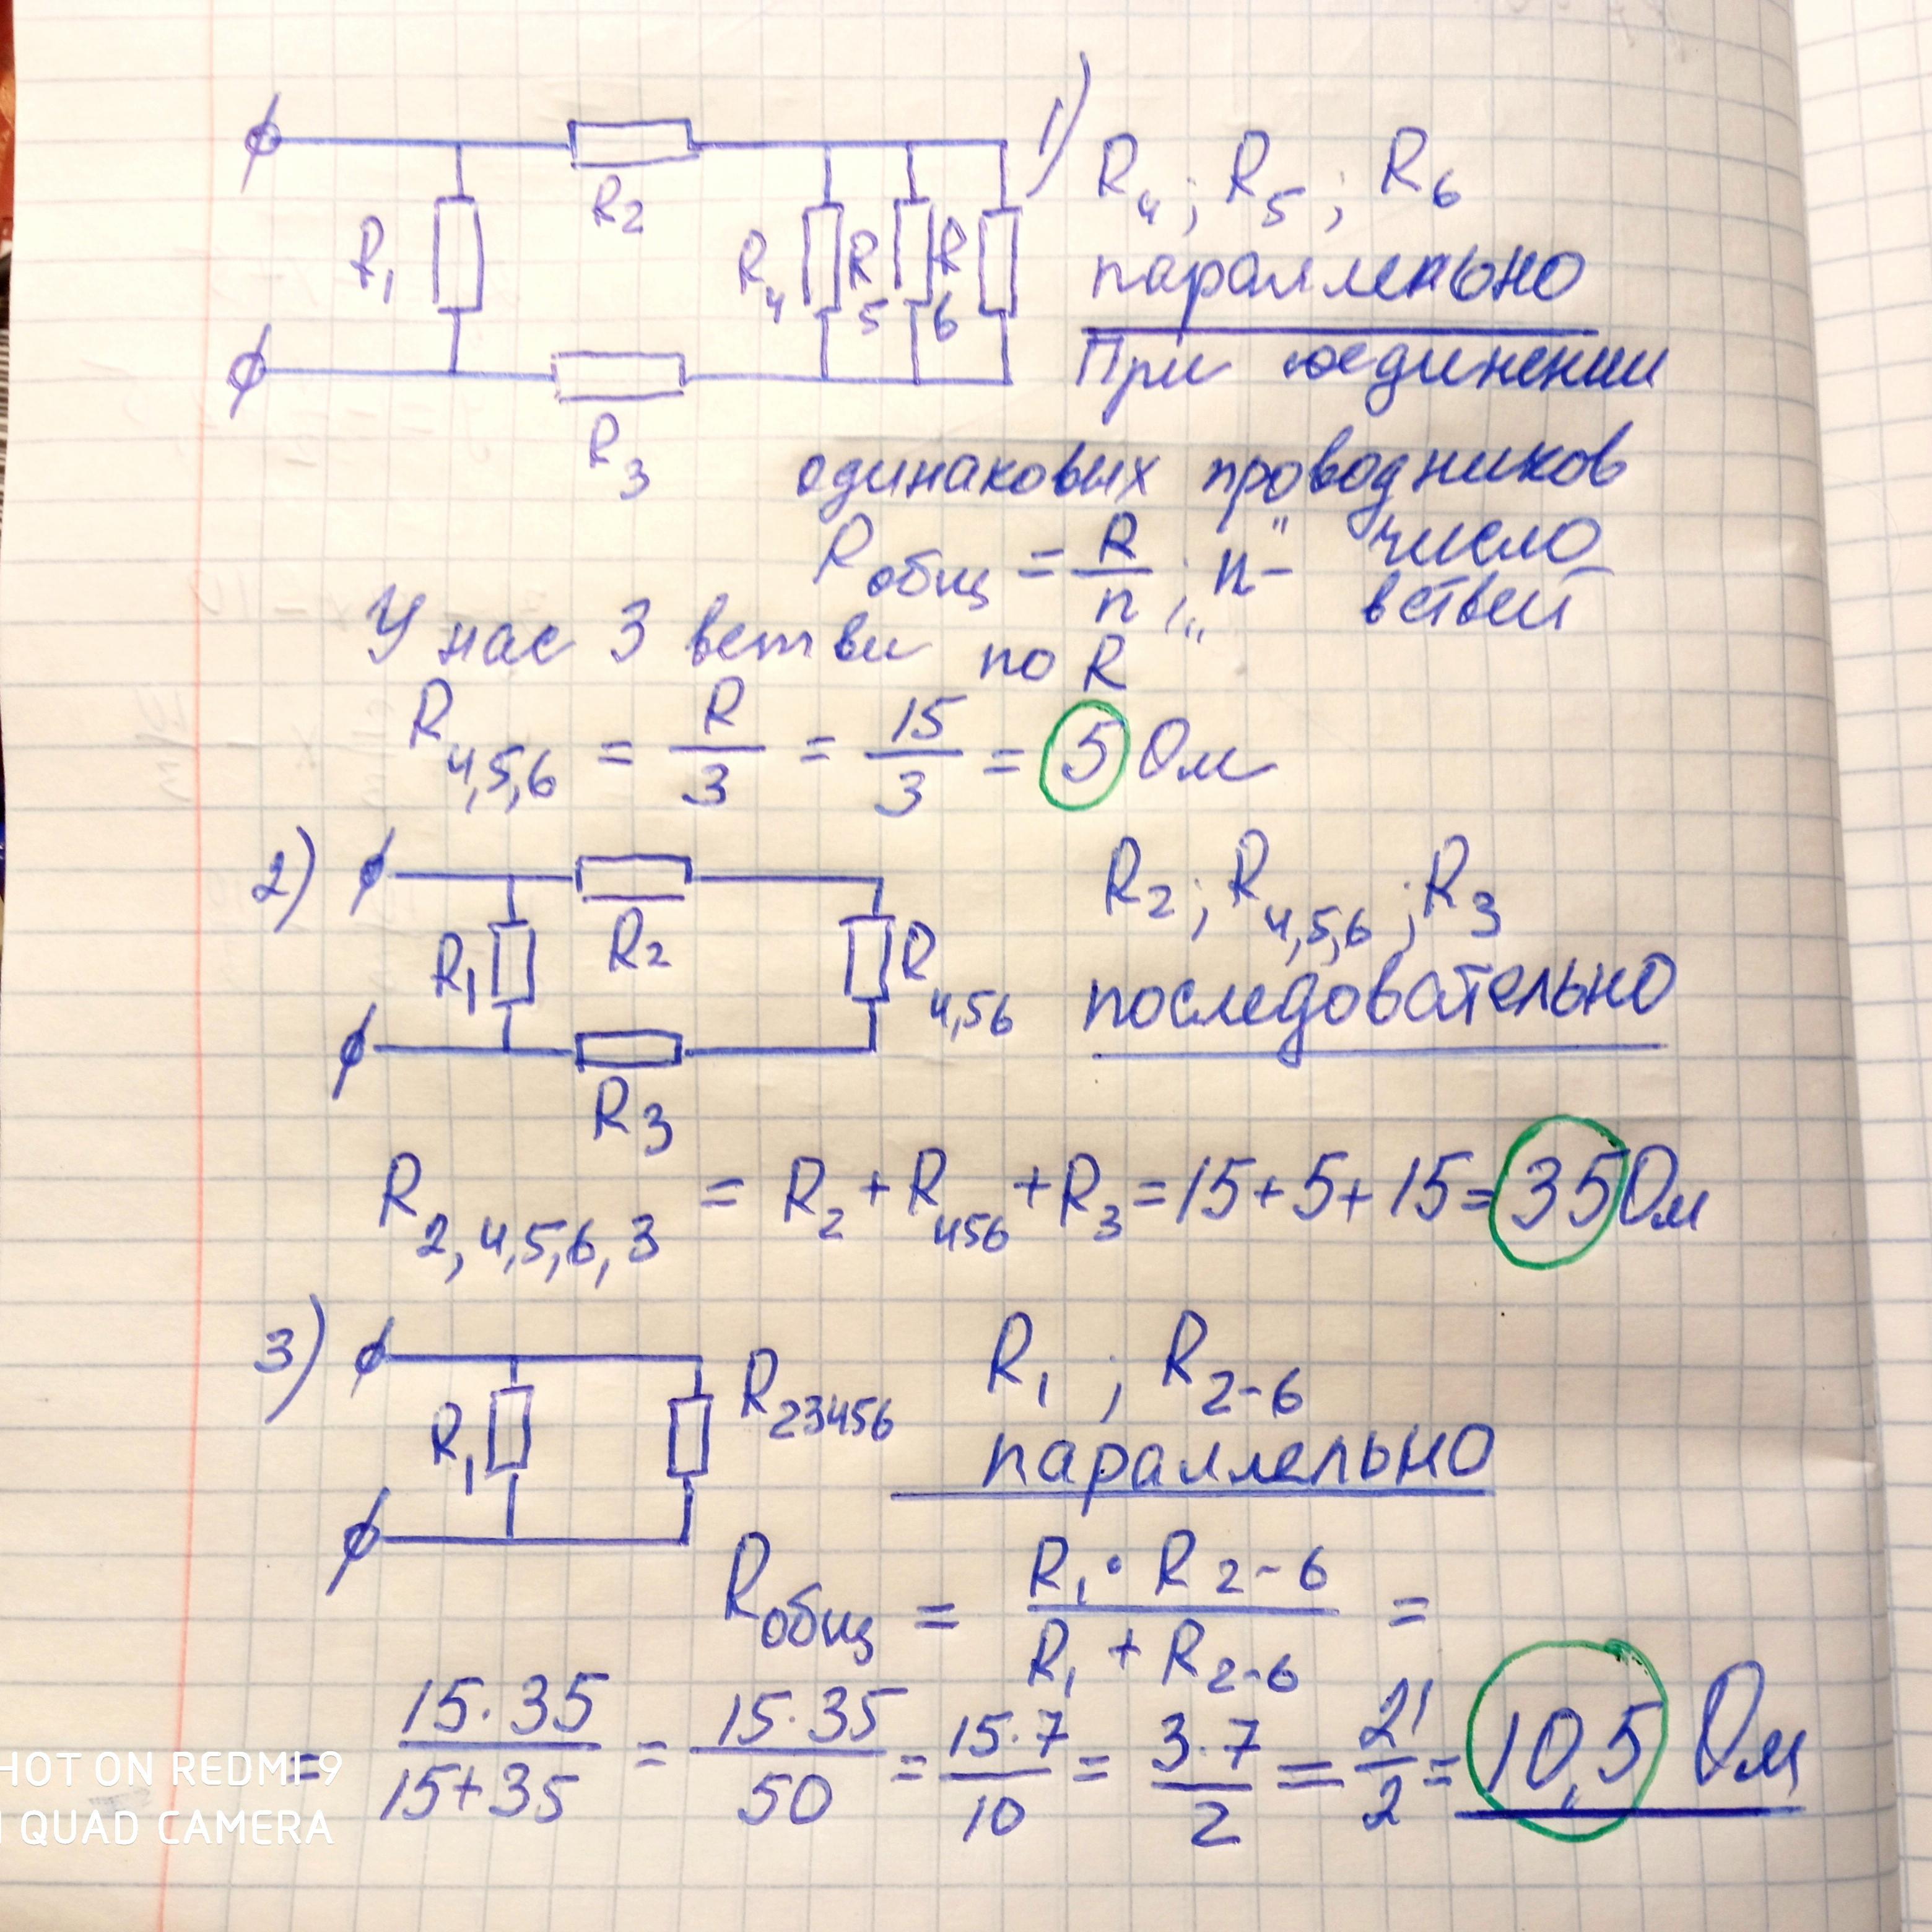 1)
R2
R4; R5; R6
R1
R4 R5 R6
параллельно
При соединении
R3
одинаковых проводников
Rобщ = R/n ; "n" - число ветвей
У нас 3 ветви по R
R4,5,6 = R/3 = 15/3 = 5 Ом
2)
R2; R4,5,6; R3
R1 R2 R4,56
последовательно
R3
R2,4,5,6,3 = R2 + R456 + R3 = 15+5+15 = 35 Ом
3)
R1 ; R2-6
R1 R23456
параллельно
Rобщ = R1 · R2-6 / R1 + R2-6 =
= 15·35/15+35 = 15·35/50 = 15·7/10 = 3·7/2 = 21/2 = 10,5 Ом
HOT ON REDMI 9
QUAD CAMERA